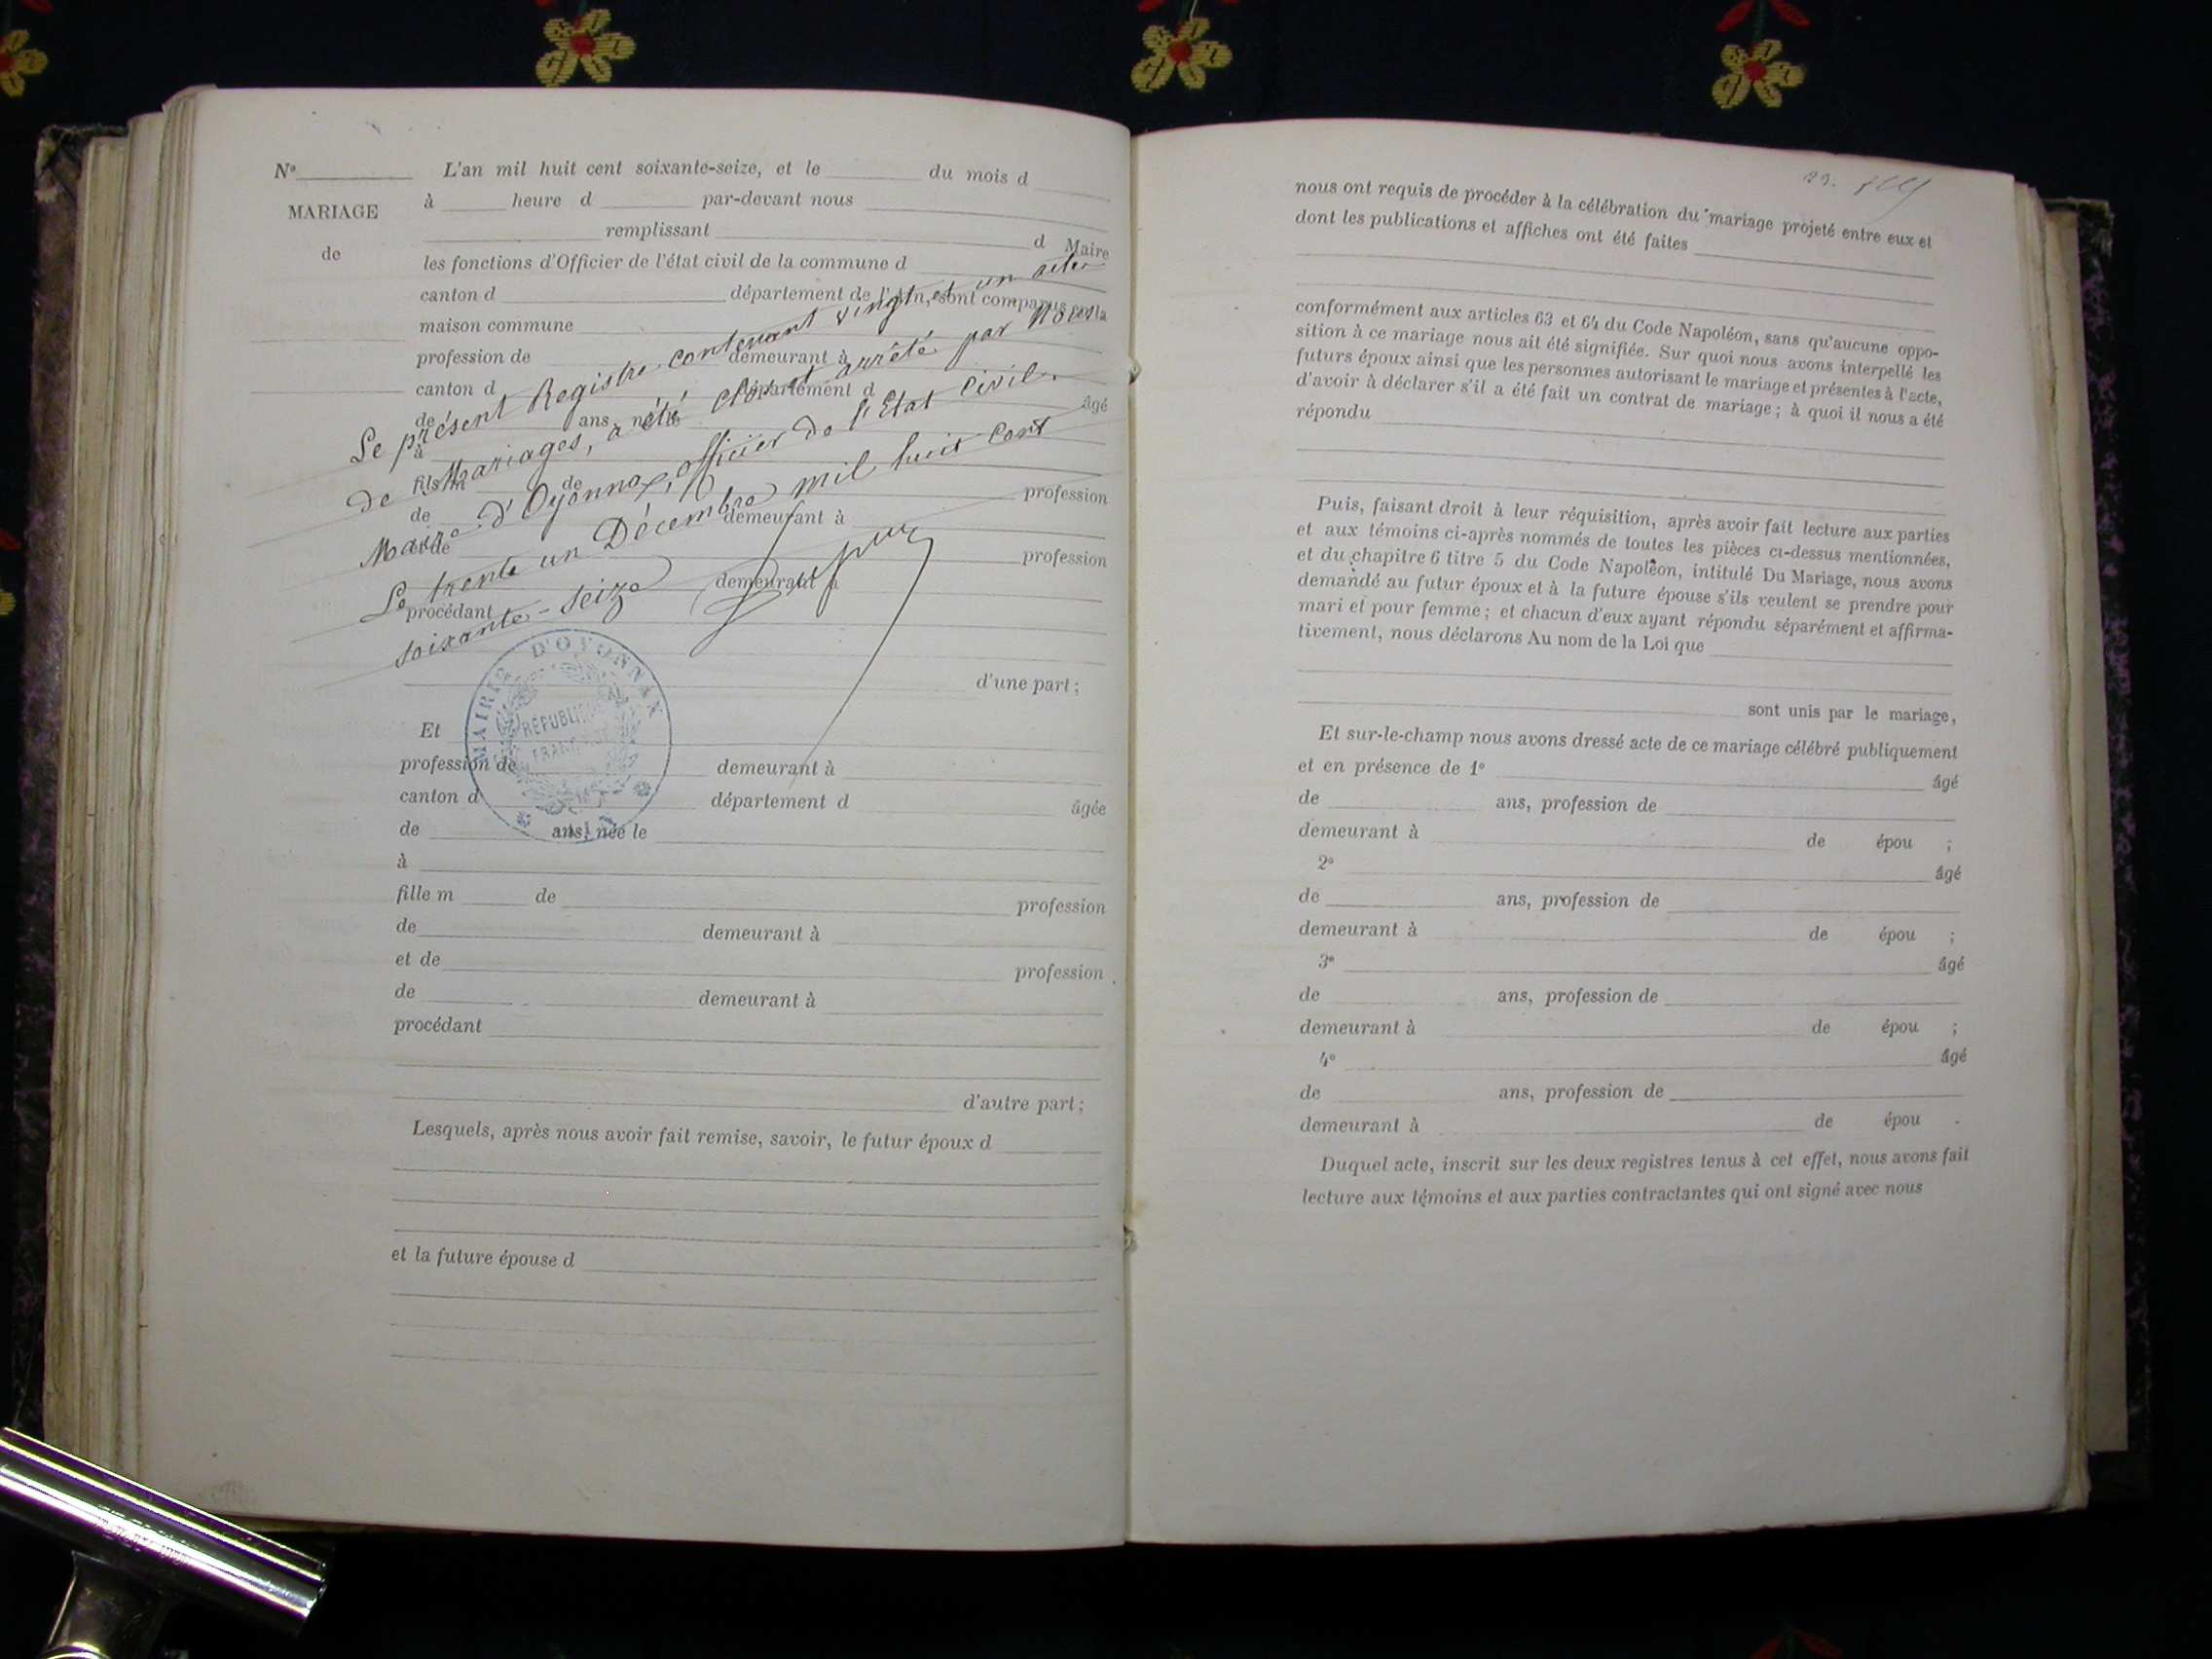 Nº
MARIAGE
de
L'an mil huit cent soixante-seize, et le du mois d
à heure d par-devant nous
remplissant d Maire
les fonctions d'Officier de l'état civil de la commune d
canton d département de l'Ain, sont comparus en la
maison commune
profession de demeurant à
canton d département d
de ans, né le âgé
à
fils m de profession
de demeurant à
et de profession
demeurant à
procédant
d'une part;
Le présent Registre contenant vingt et un actes
de Mariages, a été clos et arrêté par nous
Maire d'Oyonnax, officier de l'Etat Civil.
Le trente un Décembre mil huit cent
soixante-seize
MAIRIE D'OYONNAX
RÉPUBLIQUE
FRANÇAISE
AIN
Et
profession de demeurant à
canton d département d âgée
de ans, née le
à
fille m de profession
de demeurant à
et de profession
de demeurant à
procédant
d'autre part;
Lesquels, après nous avoir fait remise, savoir, le futur époux d
et la future épouse d
23.
nous ont requis de procéder à la célébration du mariage projeté entre eux et
dont les publications et affiches ont été faites
conformément aux articles 63 et 64 du Code Napoléon, sans qu'aucune oppo-
sition à ce mariage nous ait été signifiée. Sur quoi nous avons interpellé les
futurs époux ainsi que les personnes autorisant le mariage et présentes à l'acte,
d'avoir à déclarer s'il a été fait un contrat de mariage; à quoi il nous a été
répondu
Puis, faisant droit à leur réquisition, après avoir fait lecture aux parties
et aux témoins ci-après nommés de toutes les pièces ci-dessus mentionnées,
et du chapitre 6 titre 5 du Code Napoléon, intitulé Du Mariage, nous avons
demandé au futur époux et à la future épouse s'ils veulent se prendre pour
mari et pour femme; et chacun d'eux ayant répondu séparément et affirma-
tivement, nous déclarons Au nom de la Loi que
sont unis par le mariage,
Et sur-le-champ nous avons dressé acte de ce mariage célébré publiquement
et en présence de 1º âgé
de ans, profession de
demeurant à de épou ;
2º âgé
de ans, profession de
demeurant à de épou ;
3º âgé
de ans, profession de
demeurant à de épou ;
4º âgé
de ans, profession de
demeurant à de épou .
Duquel acte, inscrit sur les deux registres tenus à cet effet, nous avons fait
lecture aux témoins et aux parties contractantes qui ont signé avec nous